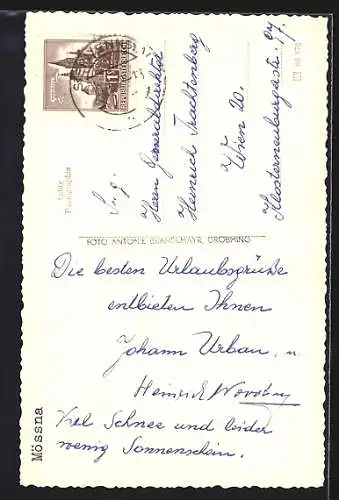 Echte
Photographie
S.g.
Herrn Generaldirektor
Heinrich Trachtenberg
Wien 20.
Klosterneuburgastr.
FOTO ANTONIE BRANDMAYR, GRÖBMING
Die besten Urlaubsgrüße
entbieten Ihnen
Johann Urban u.
Heinrich
Viel Schnee und leider
wenig Sonnenschein.
Mössna